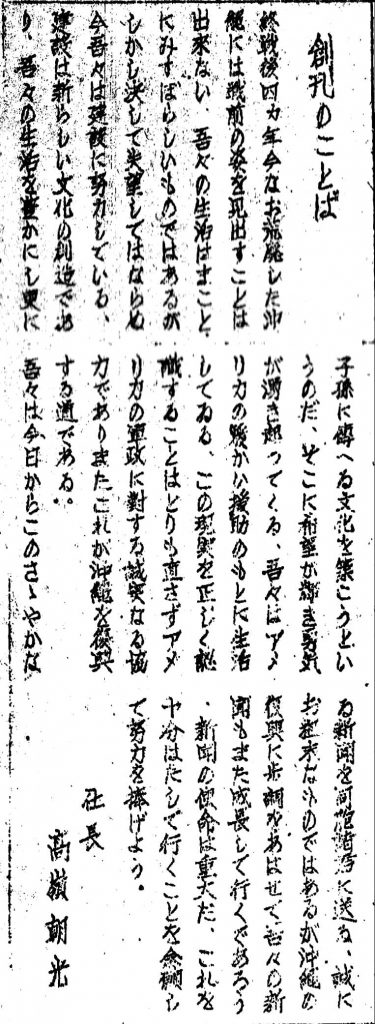 創刊のことば
終戦後四ヵ年今なお荒廃した沖
縄には戦前の姿を見出すことは
出来ない、吾々の生活はまこと、
にみすぼらしいものではあるが
しかし決して失望してはならぬ
今吾々は建設に努力している、
建設は新らしい文化の創造であ
り、吾々の生活を豊かにし更に
子孫に傳へる文化を築こうとい
うのだ、そこに希望が輝き勇気
が湧き起ってくる、吾々はアメ
リカの暖かい援助のもとに生活
してゐる、この現実を正しく認
識することはとりも直さずアメ
リカの軍政に対する誠実なる協
力でありまたこれが沖縄を復興
する道である。
吾々は今日からこのさゝやかな
る新聞を 諸君に送る、誠に
お粗末なものではあるが沖縄の
復興に歩調をあはせて、吾々の新
聞もまた成長して行くであろう
、新聞の使命は重大だ、これを
十分はたして行くことを念願し
て努力を捧げよう。
社長
高嶺朝光